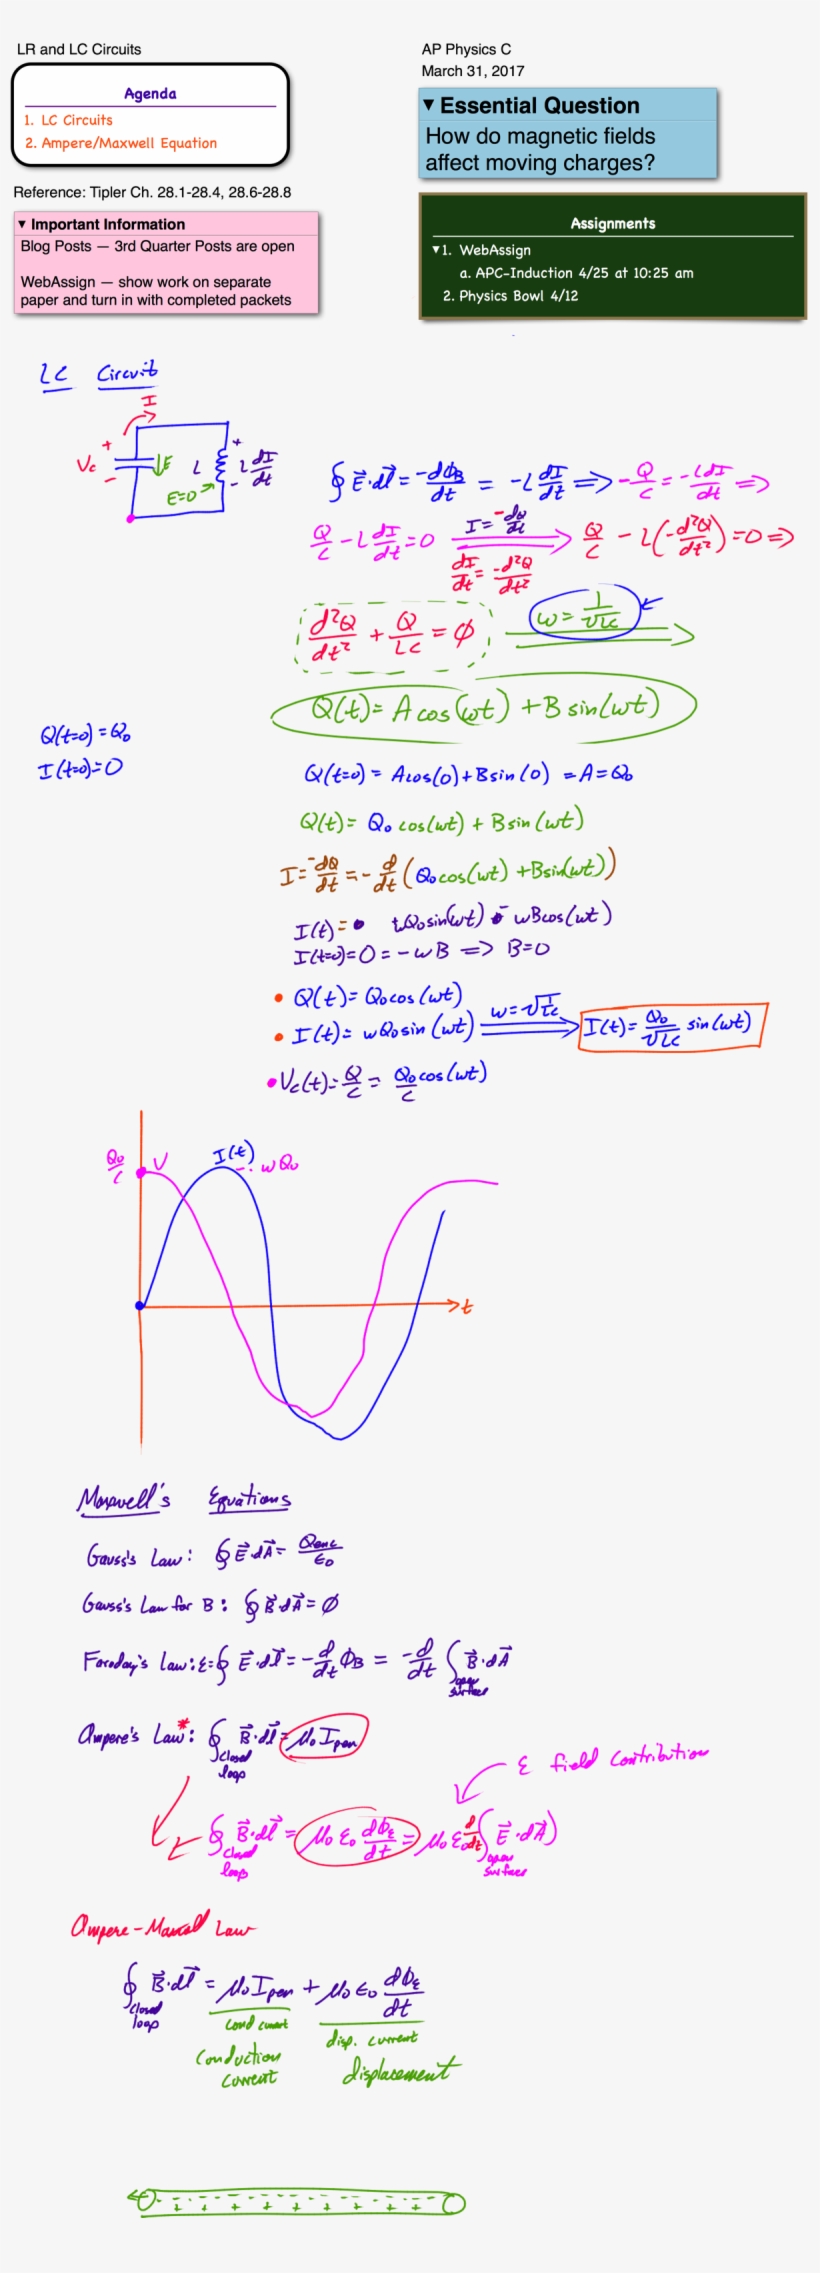 LR and LC Circuits
AP Physics C
March 31, 2017
Agenda
1. LC Circuits
2. Ampere/Maxwell Equation
▼ Essential Question
How do magnetic fields
affect moving charges?
Reference: Tipler Ch. 28.1-28.4, 28.6-28.8
▼ Important Information
Blog Posts — 3rd Quarter Posts are open
WebAssign — show work on separate
paper and turn in with completed packets
Assignments
▼1. WebAssign
a. APC-Induction 4/25 at 10:25 am
2. Physics Bowl 4/12
LC Circuit
I
Vc + - ↓E L + - L dI/dt
E=0
∮ E⃗·dl⃗ = -dΦB/dt = -L dI/dt => -Q/C = -L dI/dt =>
Q/C - L dI/dt = 0 I = -dQ/dt dI/dt = -d²Q/dt² Q/C - L(-d²Q/dt²) = 0 =>
d²Q/dt² + Q/LC = ∅ ω = 1/√LC
Q(t) = A cos(ωt) + B sin(ωt)
Q(t=0) = Q₀
I(t=0) = 0
Q(t=0) = A cos(0) + B sin(0) = A = Q₀
Q(t) = Q₀ cos(ωt) + B sin(ωt)
I = -dQ/dt = - d/dt (Q₀ cos(ωt) + B sin(ωt))
I(t) = ωQ₀ sin(ωt) - ωB cos(ωt)
I(t=0) = 0 = -ωB => B=0
• Q(t) = Q₀ cos(ωt)
• I(t) = ωQ₀ sin(ωt) ω = √1/LC I(t) = Q₀/√LC sin(ωt)
• Vc(t) = Q/C = Q₀/C cos(ωt)
Q₀/C V I(t) ωQ₀
t
Maxwell's Equations
Gauss's Law: ∮ E⃗·dA⃗ = Qenc/ε₀
Gauss's Law for B: ∮ B⃗·dA⃗ = ∅
Faraday's Law: ε = ∮ E⃗·dl⃗ = -d/dt ΦB = -d/dt ∫ B⃗·dA⃗
open
surface
Ampere's Law*: ∮ B⃗·dl⃗ = μ₀ Ipen
closed
loop
E field contribution
∮ B⃗·dl⃗ = μ₀ ε₀ dΦE/dt = μ₀ ε₀ d/dt (∫ E⃗·dA⃗)
closed
loop
open
surface
Ampere-Maxwell Law
∮ B⃗·dl⃗ = μ₀ Ipen + μ₀ ε₀ dΦE/dt
closed
loop
cond current
disp. current
conduction
current
displacement
- - - - - - - -
+ + + + + + + +